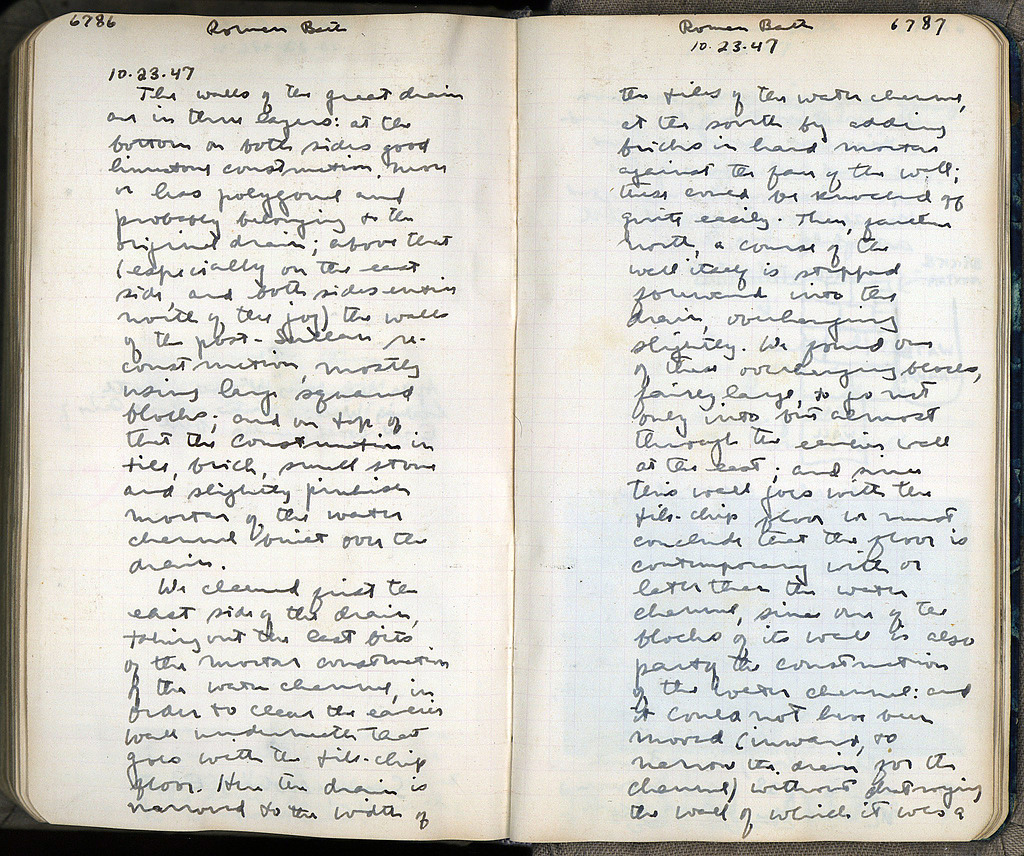 6786
Roman Bath
10.23.47
The walls of the great drain
are in three layers: at the
bottom on both sides good
limestone construction, more
or less polygonal and
probably belonging to the
original drain; above that
(especially on the east
side, and both sides
north of the jog) the walls
of the post-Sullan re-
construction, mostly
using large squared
blocks; and on top of
that the construction in
tile, brick, small stone
and slightly pinkish
mortar of the water
channel built over the
drain.
We cleaned first the
east side of the drain,
taking out the last bits
of the mortar construction
of the water channel, in
order to clear the earlier
wall underneath that
goes with the tile-chip
floor. Here the drain is
narrowed to the width of
Roman Bath
6787
10.23.47
the tiles of the water channel,
at the south by adding
bricks in hard mortar
against the face of the wall;
these could be knocked off
quite easily. Then, farther
north, a course of the
wall itself is stepped
forward into the
drain, overhanging
slightly. We found one
of these overhanging blocks,
fairly large, to go not
only into but almost
through the earlier wall
at the east; and since
this wall goes with the
tile-chip floor we must
conclude that the floor is
contemporary with or
later than the water
channel, since one of the
blocks of its wall is also
part of the construction
of the water channel: and
it could not have been
moved (inward, to
narrow the drain for the
channel) without destroying
the wall of which it was a